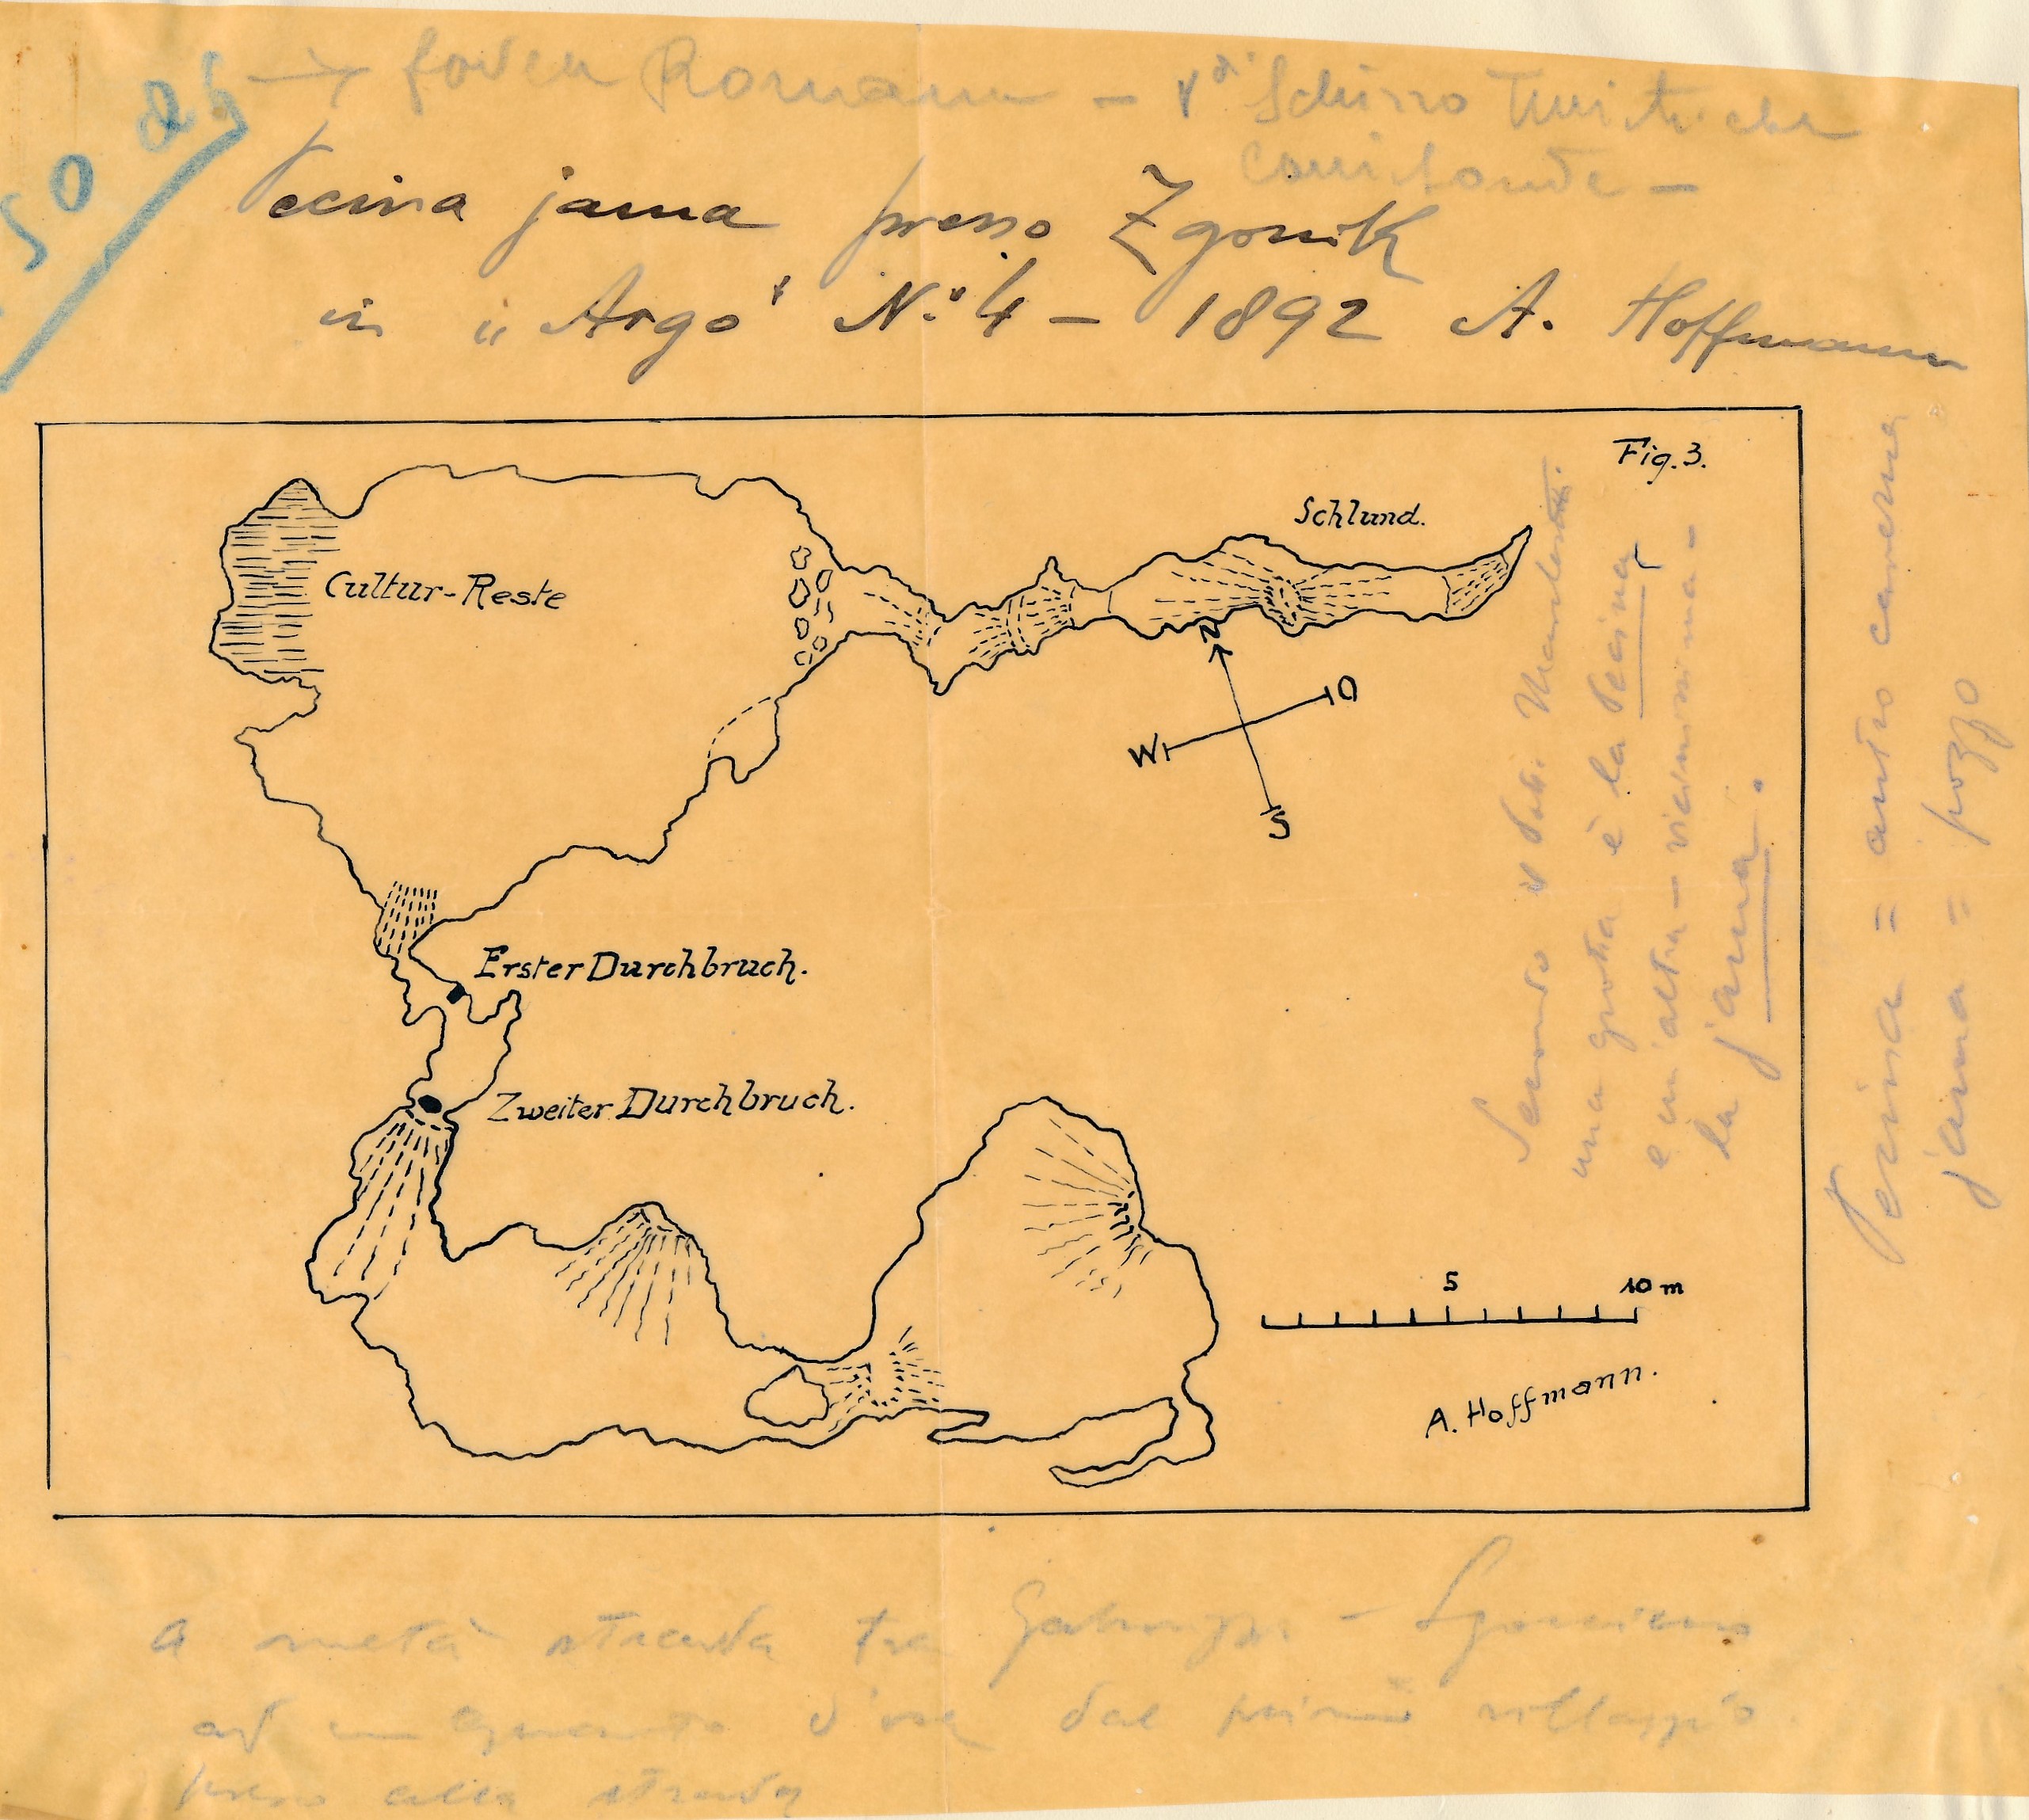 → fovea Romana - v di Schizzo Turistiche
Comitande -
50 ab
Pecina jama presso Zgonik
in „Argo" N:o 4 - 1892 A. Hoffmann
Fig. 3.
Schlund.
Cultur-Reste
N
O
W
S
Erster Durchbruch.
Zweiter Durchbruch.
5 10 m
A. Hoffmann.
Secondo il Dott. Marchesetti.
una grotta è la Pecina
e un'altra - vicinissima -
la jama.
Pecina = antro caverna
jama = pozzo
a metà strada tra Gabrovizza - Sgonico
ad un quarto d'ora dal primo villaggio
presso alla strada